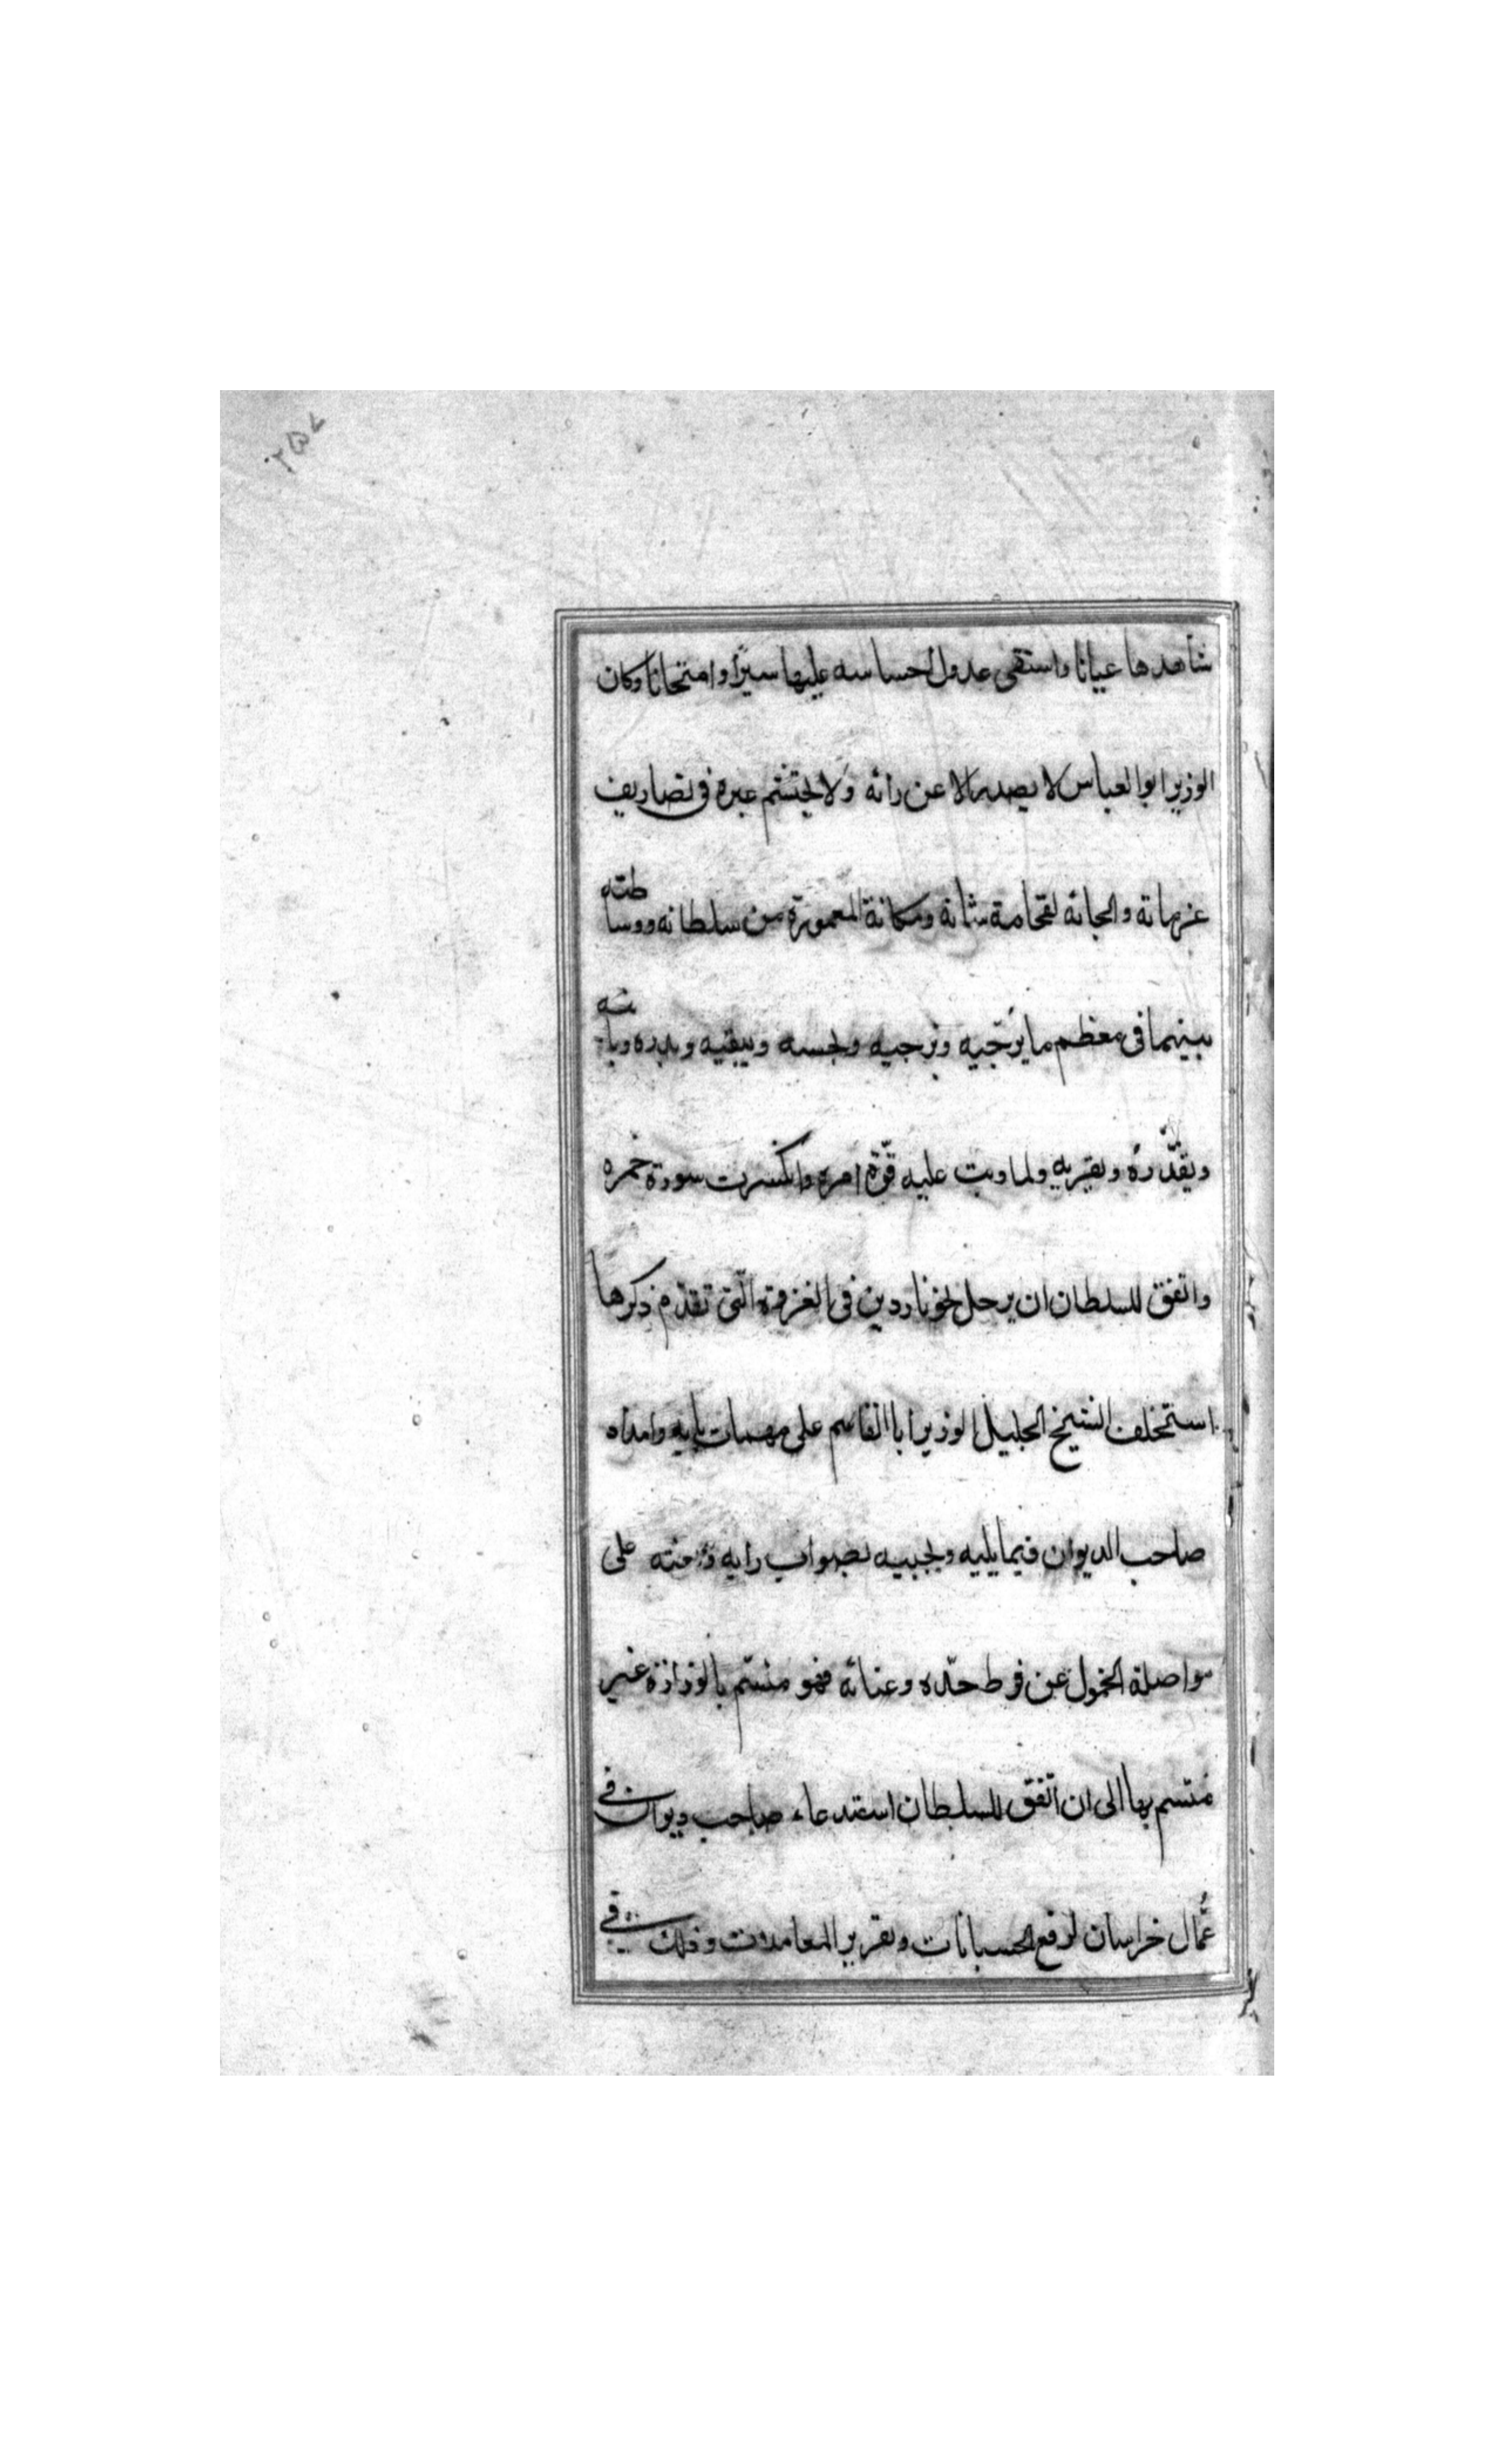 ٢٥٧
شاهدها عيانا واستقى عدول احساسه عليها سيرًا وامتحانا وكان
الوزير ابو العباس لا يصدر الا عن رائه ولا يحتشم غيره فى تصاريف
وانحائه لفخامة شانه ومكانة المعمورة من سلطانه ووساطته
بينهما فى معظم ما يزجيه ويرجيه ويبقيه
ويقدّره ويقربه ولما وهت عليه قوّة امره وانكسرت سورة خمره
واتفق للسلطان ان يرحل نحو ناردين فى الغزوة الّتى تقدّم ذكرها
استخلف الشيخ الجليل الوزير ابا القاسم على مهمات بابه وامداد
صاحب الديوان فيما يليه ويجبيه بصواب رايه على
مواصلة الخمول عن فرط حدّه وعنائه فهو متسم بالوزارة غير
متسم بها الى ان اتّفق للسلطان استدعاء صاحب ديوان فى
عمّال خراسان لرفع الحسبانات وتقرير المعاملات وذلك فى